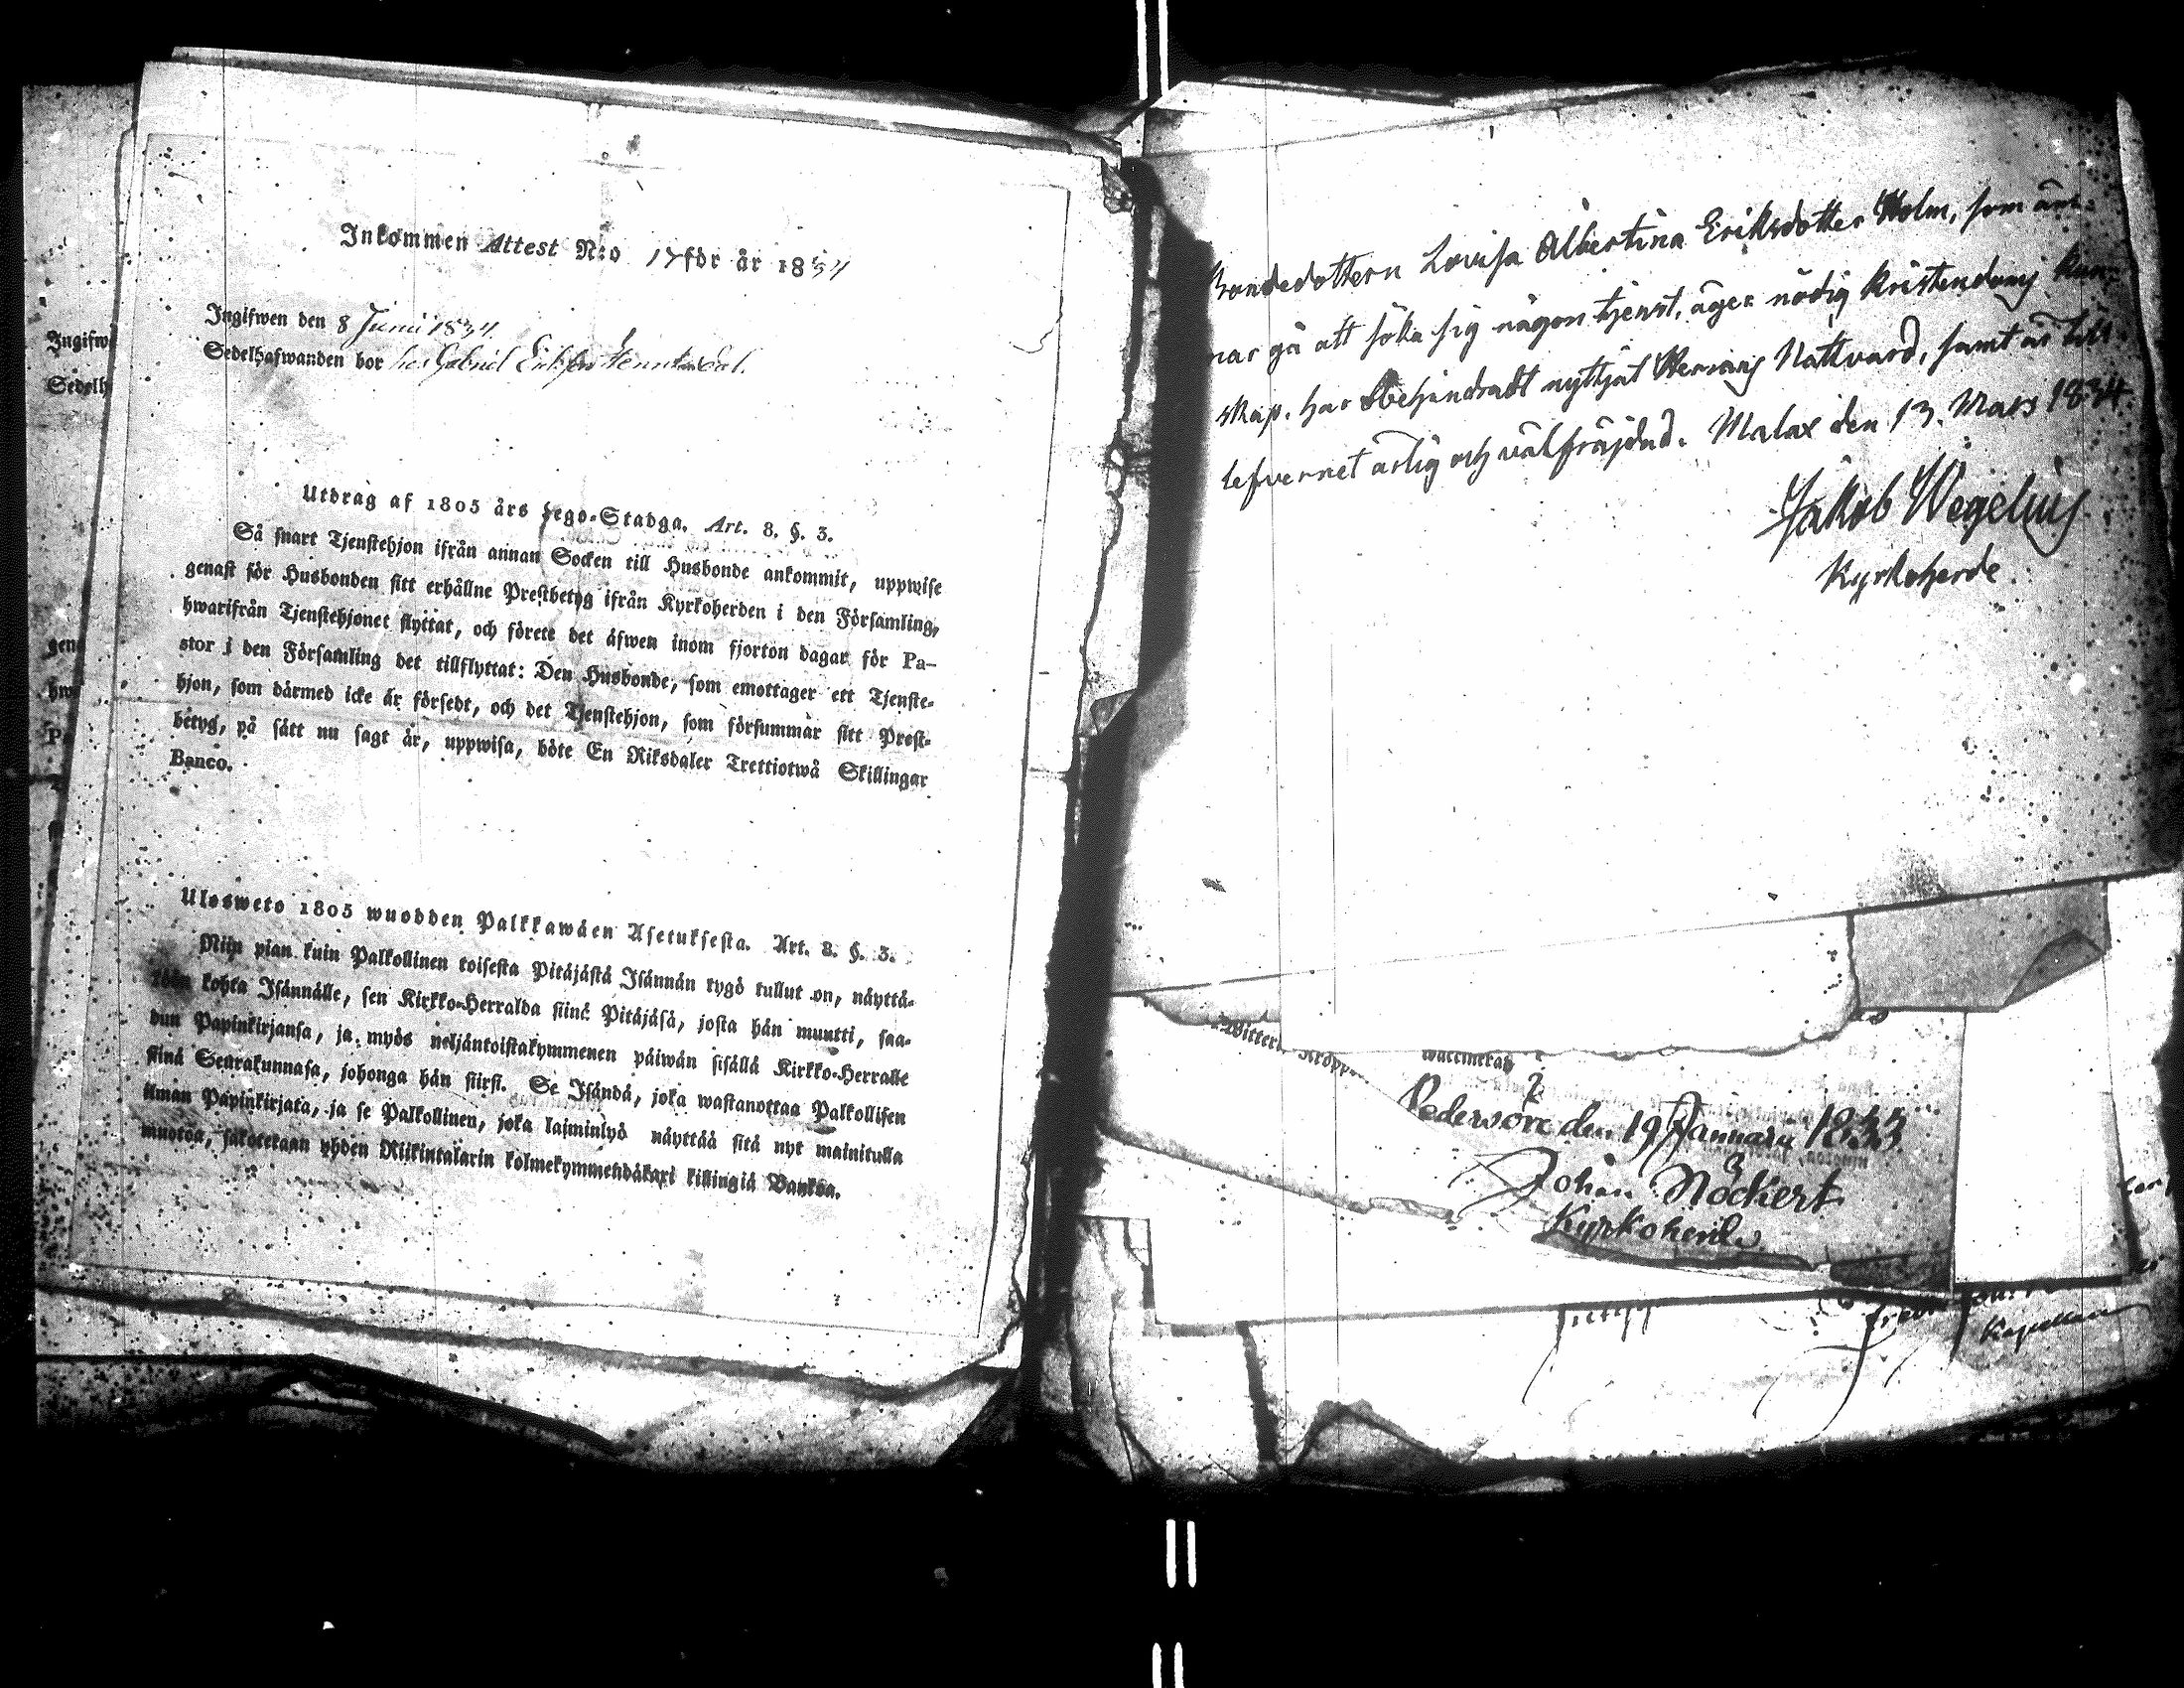 Inkommen Attest N:o 17 för år 1834
Ingifwen den 8 Junii 1834.
Sedelhafwanden bor hos Gabriel
Utdrag af 1805 års Lego-Stadga. Art. 8. §. 3.
Så snart Tjenstehjon ifrån annan Socken till Husbonde ankommit, uppwise
genast för Husbonden sitt erhållne Prestbetyg ifrån Kyrkoherden i den Församling,
hwarifrån Tjenstehjonet flyttat, och förete det äfwen inom fjorton dagar för Pa-
stor i den Församling det tillflyttat: Den Husbonde, som emottager ett Tjenste-
hjon, som därmed icke är försedt, och det Tjenstehjon, som försummar sitt Prest-
betyg, på sätt nu sagt är, uppwisa, böte En Riksdaler Trettiotwå Skillingar
Banco.
Ulosweto 1805 wuodden Palkkawäen Asetuksesta. Art. 8. §. 3.
Niin pian kuin Palkollinen toisesta Pitäjästä Isännän tygö tullut on, näyttä-
köön kohta Isännälle, sen Kirkko-Herralda siinä Pitäjäsä, josta hän muutti, saa-
dun Papinkirjansa, ja myös neljäntoistakymmenen päiwän sisällä Kirkko-Herralle
siinä Seurakunnasa, johonga hän siirsi. Se Isändä, joka wastanottaa Palkollisen
ilman Papinkirjata, ja se Palkollinen, joka laiminlyö näyttää sitä nyt mainitulla
muotoa, sakotetaan yhden Riikintalarin kolmekymmendäkaxi killingiä Bankoa.
Ingifw
Sedelh
gena
hwa
Bondedottern Lovisa Albertina Eriksdotter Holm, som äm-
nar gå att söka sig någon tjenst, äger nödig Kristendoms kun-
skap. har obehindradt nyttjat Herrans Nattvard, samt är till
lefvernet ärlig och välfräjdad. Malax den 13. Mars 1834.
Jakob Wegelius
Kyrkoherde.
Pedersöre den 19 Januarii 1833
Johan Nöckert
Kyrkoherde
Kapellan